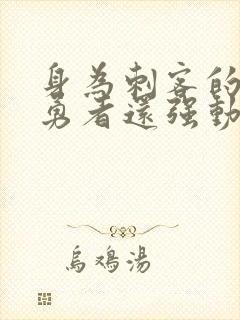 身為刺客的
勇者還強動
烏鳴湯